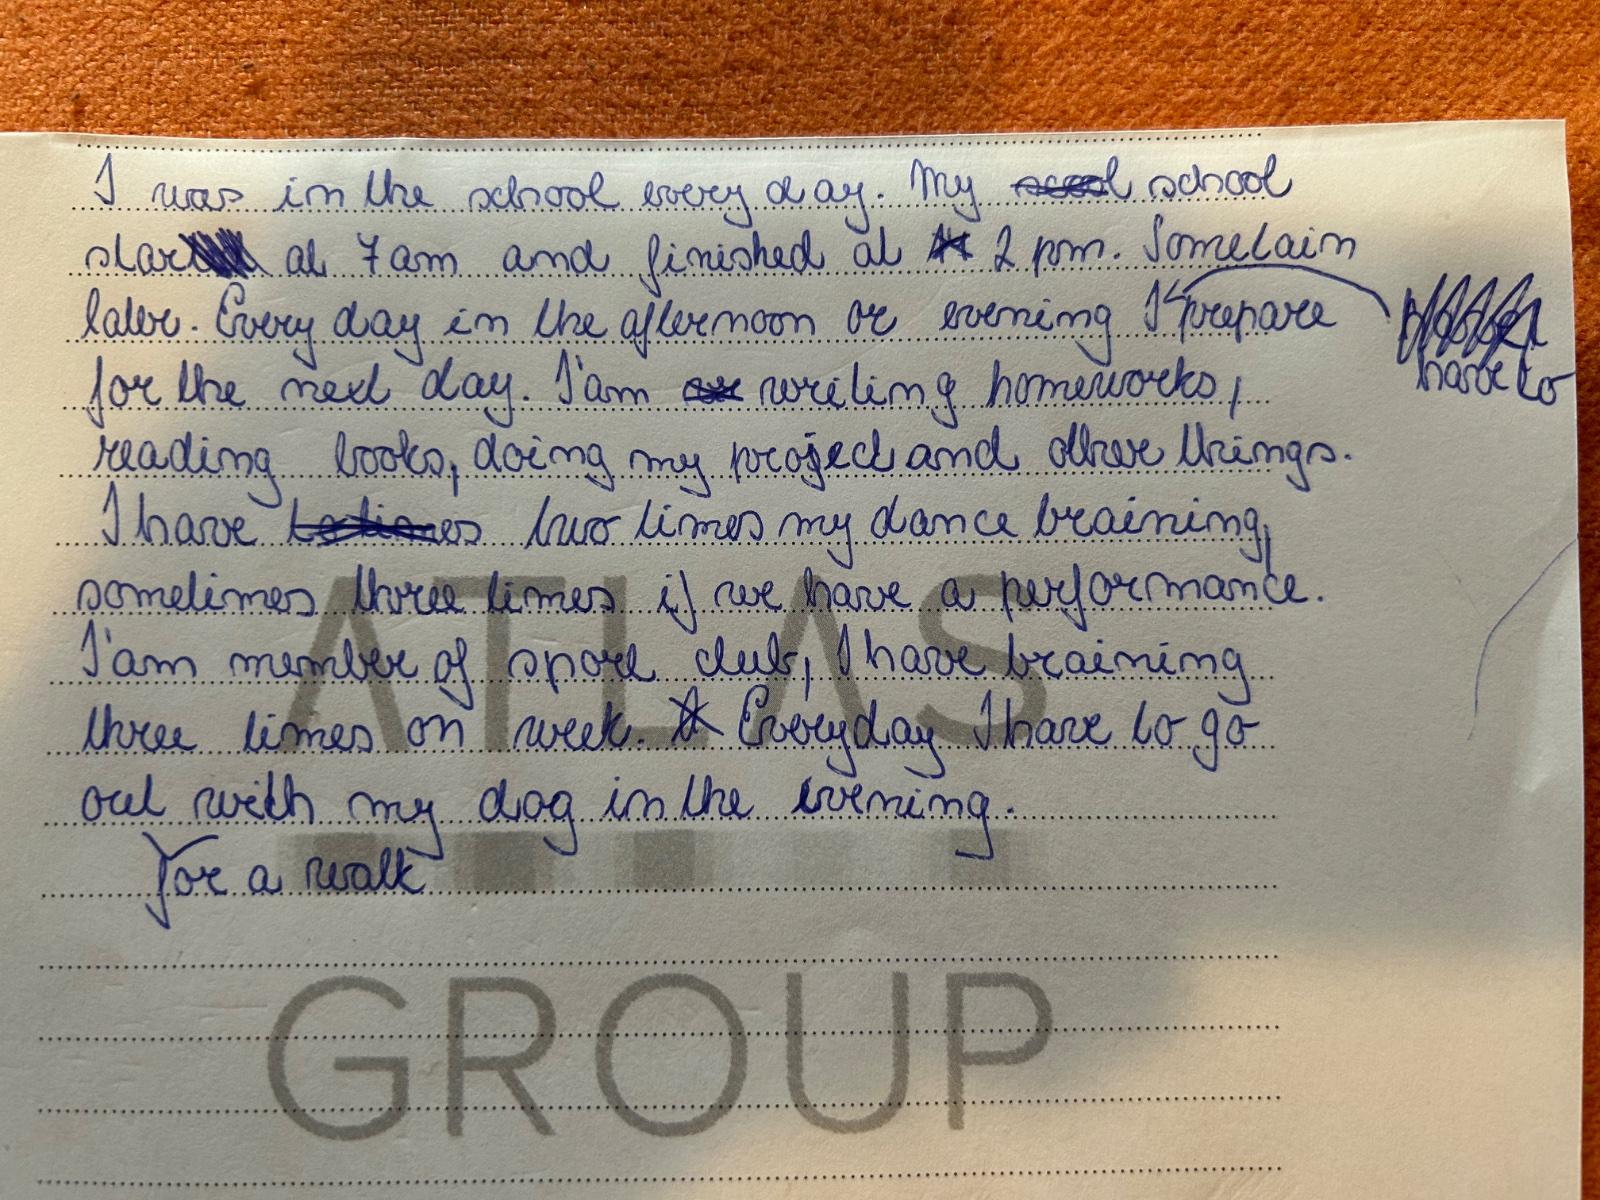 I was in the school every day. My school
star at 7am and finished at 2 pm. Sometaim
later. Every day in the afternoon or evening I have to prepare
for the next day. I'am writing homeworks,
reading books, doing my project and other things.
I have two times my dance training,
sometimes three times if we have a performance.
I'am member of sport club, I have training
three times on week. Everyday I have to go
out with my dog in the evening.
for a walk
ATLAS
GROUP